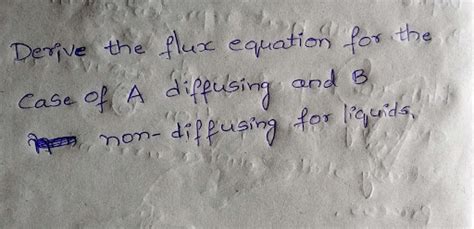 Derive the flux equation for the
case of A diffusing and B
non-diffusing for liquids.